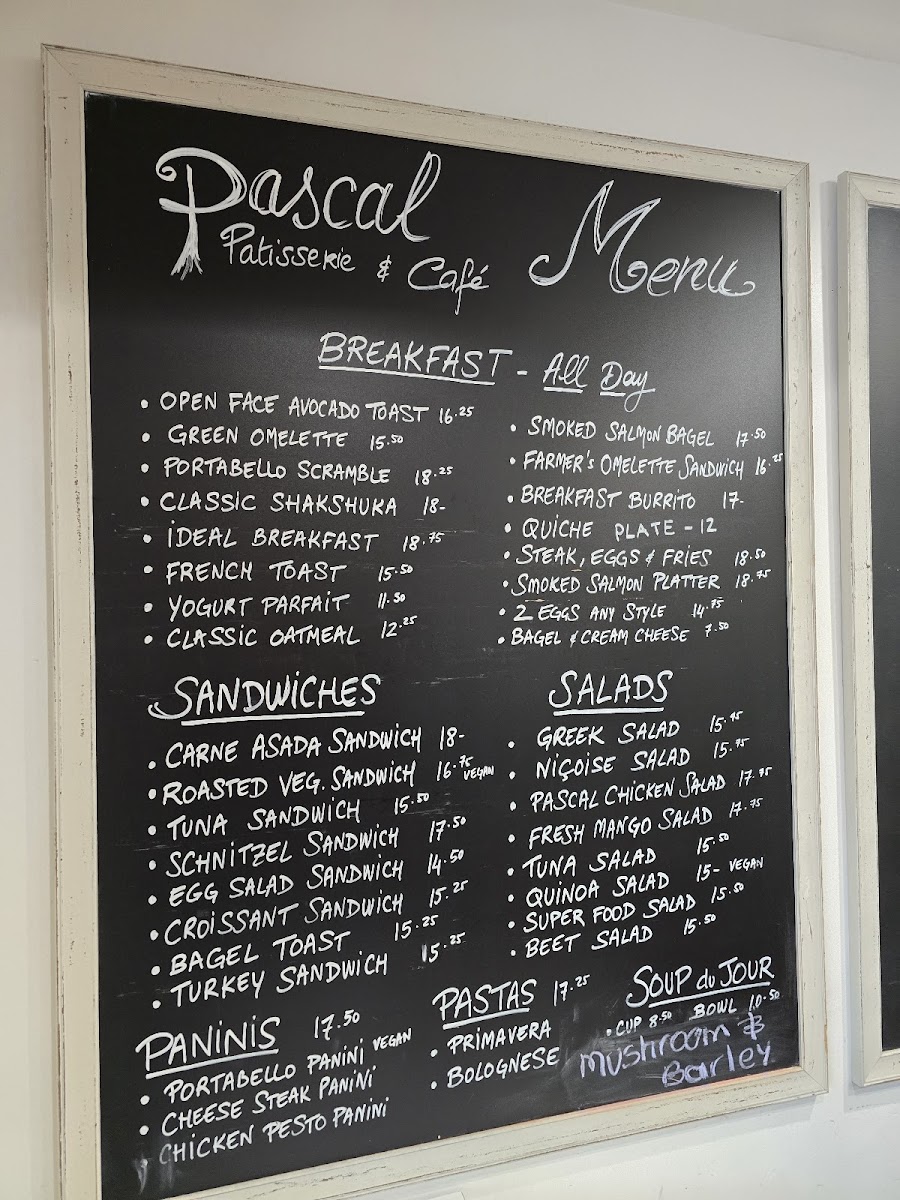 Pascal
Patisserie & Café
Menu
BREAKFAST - All Day
• OPEN FACE AVOCADO TOAST 16.25
• GREEN OMELETTE 15.50
• PORTABELLO SCRAMBLE 18.25
• CLASSIC SHAKSHUKA 18-
• IDEAL BREAKFAST 18.75
• FRENCH TOAST 15.50
• YOGURT PARFAIT 11.50
• CLASSIC OATMEAL 12.25
• SMOKED SALMON BAGEL 17.50
• FARMER'S OMELETTE SANDWICH 16.25
• BREAKFAST BURRITO 17-
• QUICHE PLATE - 12
• STEAK, EGGS & FRIES 18.50
• SMOKED SALMON PLATTER 18.75
• 2 EGGS ANY STYLE 14.75
• BAGEL & CREAM CHEESE 7.50
SANDWICHES
• CARNE ASADA SANDWICH 18-
• ROASTED VEG. SANDWICH 16.75 VEGAN
• TUNA SANDWICH 15.50
• SCHNITZEL SANDWICH 17.50
• EGG SALAD SANDWICH 14.50
• CROISSANT SANDWICH 15.25
• BAGEL TOAST 15.25
• TURKEY SANDWICH 15.25
SALADS
• GREEK SALAD 15.75
• NIÇOISE SALAD 15.75
• PASCAL CHICKEN SALAD 17.75
• FRESH MANGO SALAD 17.75
• TUNA SALAD 15.50
• QUINOA SALAD 15- VEGAN
• SUPER FOOD SALAD 15.50
• BEET SALAD 15.50
PANINIS 17.50
• PORTABELLO PANINI VEGAN
• CHEESE STEAK PANINI
• CHICKEN PESTO PANINI
PASTAS 17.25
• PRIMAVERA
• BOLOGNESE
SOUP du JOUR
• CUP 8.50 BOWL 10.50
Mushroom &
Barley